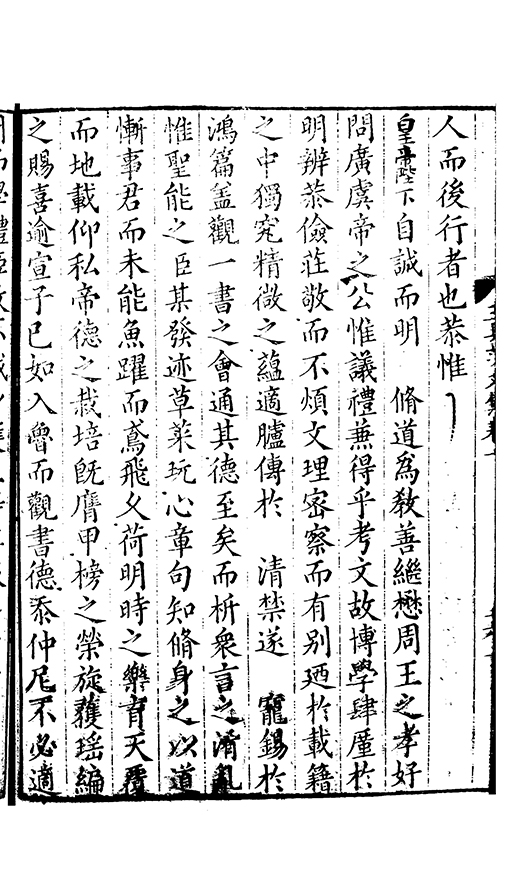 人而後行者也恭惟
皇帝陛下自誠而明　脩道爲敎善繼懋周王之孝好
問廣虞帝之公惟議禮兼得乎考文故博學肆厪於
明辨恭儉莊敬而不煩文理密察而有別廼於載籍
之中獨究精微之蘊適臚傳於　清禁遂　寵錫於
鴻篇盖觀一書之會通其德至矣而析衆言之淆亂
惟聖能之臣某發迹草萊玩心章句知脩身之以道
慚事君而未能魚躍而鳶飛乂荷明時之樂育天覆
而地載仰私帝德之栽培旣膺甲榜之榮旋獲瑶編
之賜喜逾宣子已如入魯而觀書德忝仲尼不必適